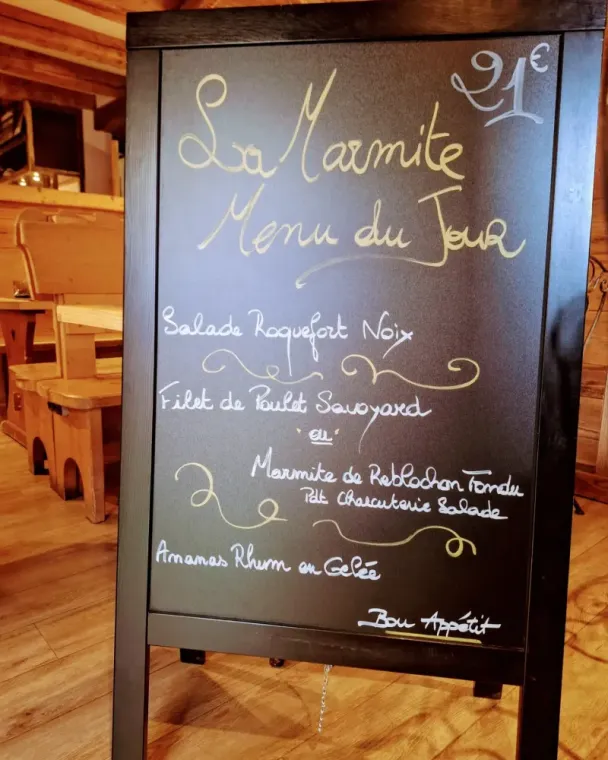 21€
La Marmite
Menu du Jour
Salade Roquefort Noix
Filet de Poulet Savoyard
ou
Marmite de Reblochon Fondu
Pdt Charcuterie Salade
Ananas Rhum en Gelée
Bon Appétit